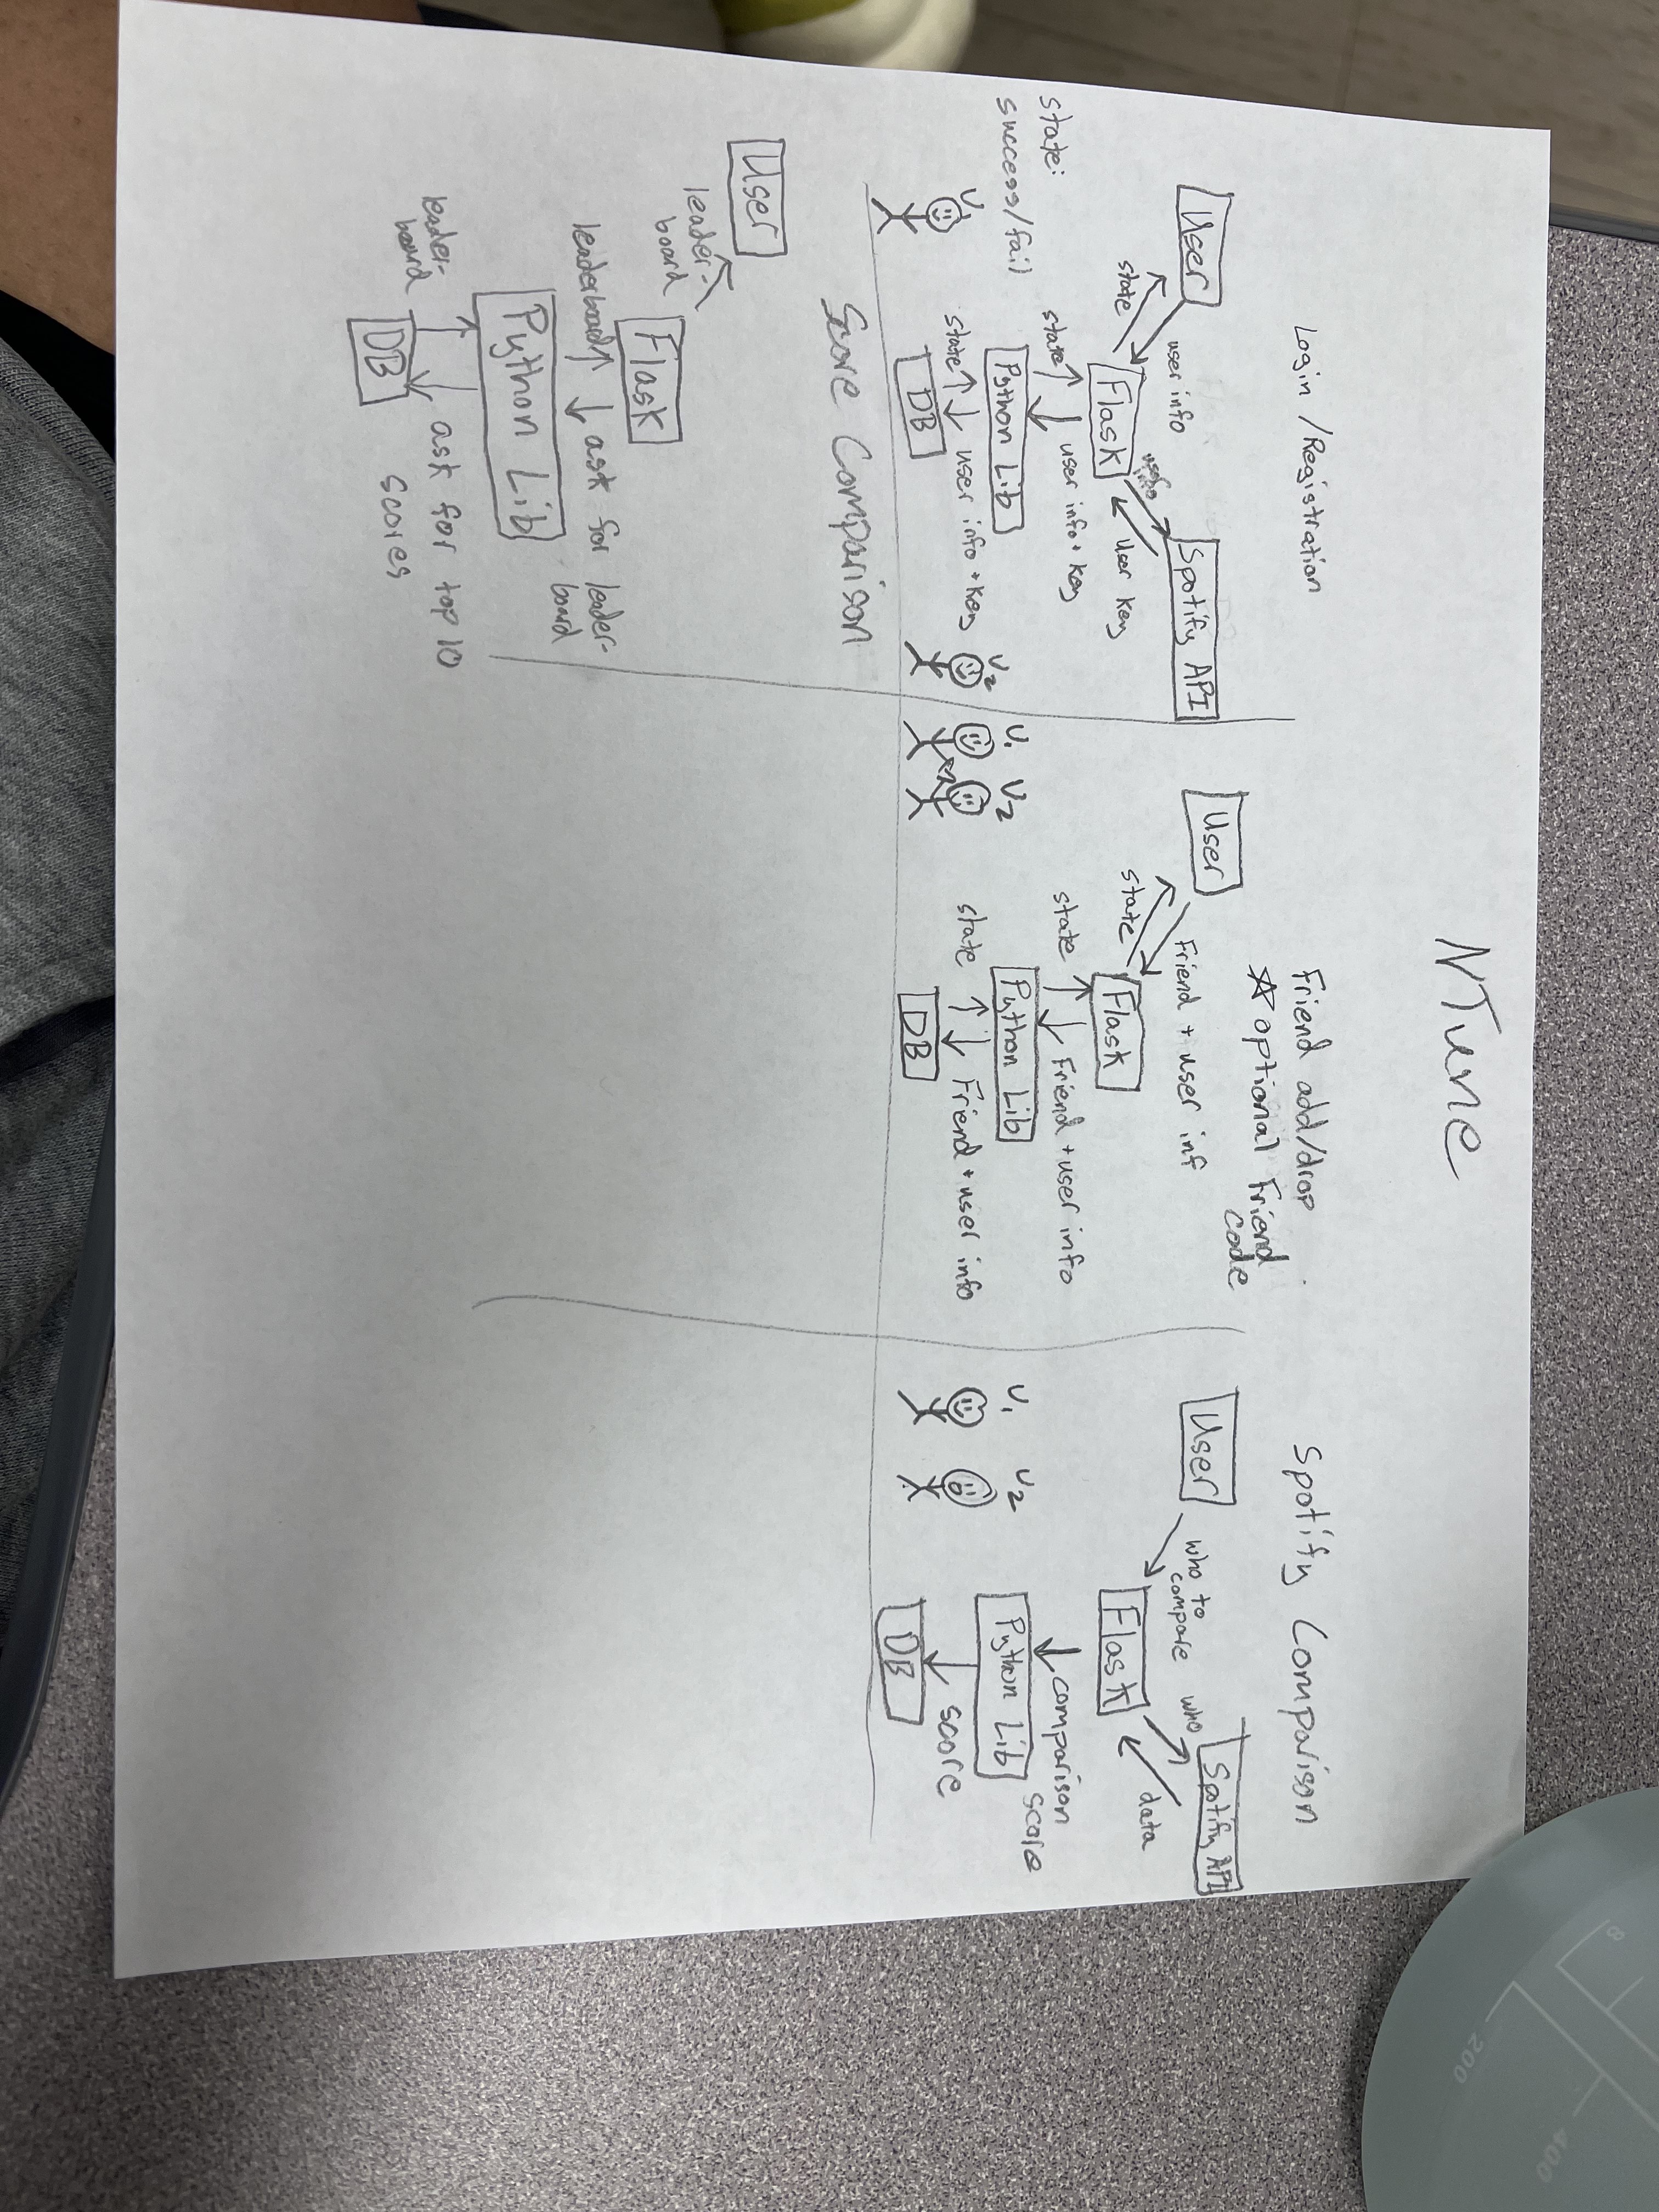 NTune
Login/Registration
User
user info
state
Flask
user info
Spotify API
user key
state
user info + key
Python Lib
state
user info + key
DB
state:
success/fail
U1
U2
Friend add/drop
☆ optional Friend
code
User
Friend + user inf
state
Flask
state
Friend + user info
Python Lib
state
Friend + user info
DB
U1
U2
Spotify Comparison
User
who to
compare
Flask
who
Spotify API
data
comparison
score
Python Lib
score
DB
U1
U2
Score Comparison
User
leader-
board
Flask
leaderboard
ask for leader-
board
Python Lib
leader-
board
ask for top 10
scores
DB
8
200
400